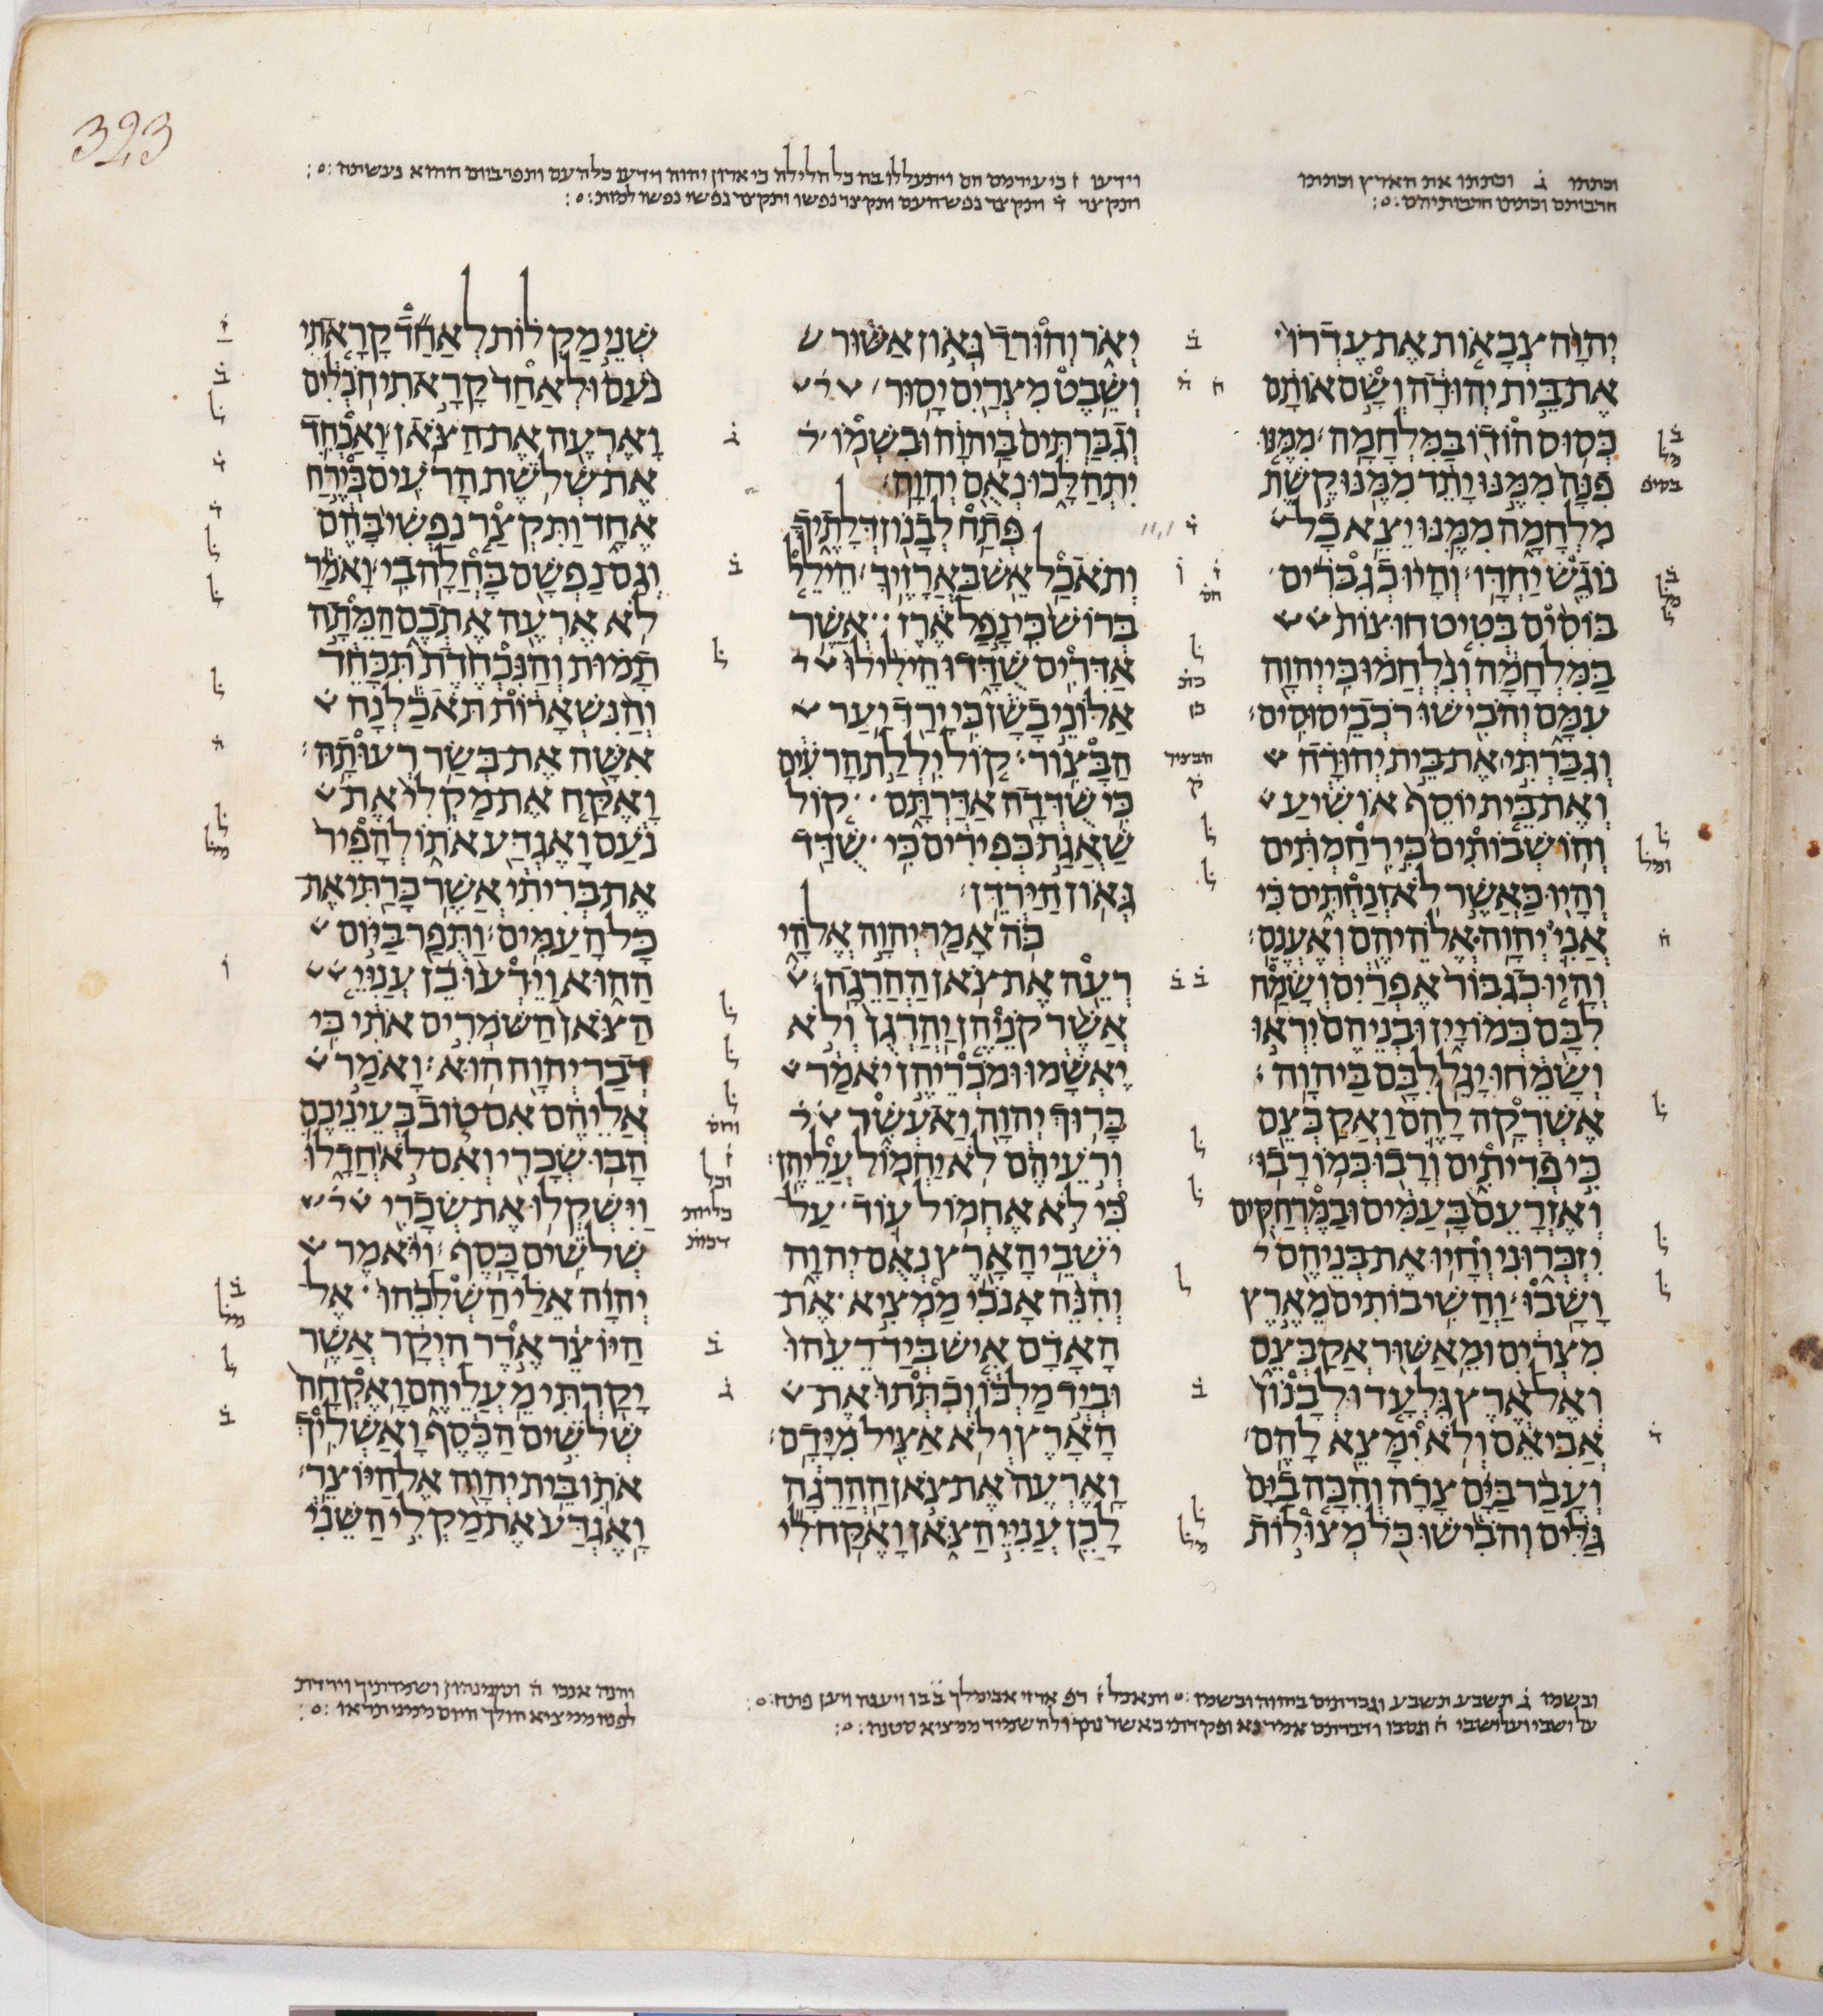 323
וכתתו ג וכתתו את הארץ וכתתו
חרבותם וכתתו חרבותיהם
יהוה צבאות את עדרו
את בית יהודה ושם אותם
כסוס הודו במלחמה ממנו
פנה ממנו יתד ממנו קשת
מלחמה ממנו יצא כל
נוגש יחדו והיו כגברים
בוסים בטיט חוצות
במלחמה ונלחמו כי יהוה
עמם והבישו רכבי סוסים
וגברתי את בית יהודה
ואת בית יוסף אושיע
והושבותים כי רחמתים
והיו כאשר לא זנחתים כי
אני יהוה אלהיהם ואענם
והיו כגבור אפרים ושמח
לבם כמו יין ובניהם יראו
ושמחו יגל לבם ביהוה
אשרקה להם ואקבצם
כי פדיתים ורבו כמו רבו
ואזרעם בעמים ובמרחקים
יזכרוני וחיו את בניהם
ושבו והשיבותים מארץ
מצרים ומאשור אקבצם
ואל ארץ גלעד ולבנון
אביאם ולא ימצא להם
ועבר בים צרה והכה בים
גלים והבישו כל מצולות
יאר והורד גאון אשור
ושבט מצרים יסור
וגברתים ביהוה ובשמו
יתהלכו נאם יהוה
פתח לבנון דלתיך
ותאכל אש בארזיך הילל
ברוש כי נפל ארז אשר
אדרים שדדו הילילו
אלוני בשן כי ירד יער
הבצור קול יללת הרעים
כי שדדה אדרתם קול
שאגת כפירים כי שדד
גאון הירדן
כה אמר יהוה אלהי
רעה את צאן ההרגה
אשר קניהן יהרגן ולא
יאשמו ומכריהן יאמר
ברוך יהוה ואעשר
ורעיהם לא יחמול עליהן
כי לא אחמול עוד על
ישבי הארץ נאם יהוה
והנה אנכי ממציא את
האדם איש ביד רעהו
וביד מלכו וכתתו את
הארץ ולא אציל מידם
וארעה את צאן ההרגה
לכן עניי הצאן ואקח לי
שני מקלות לאחד קראתי
נעם ולאחד קראתי חבלים
וארעה את הצאן ואכחד
את שלשת הרעים בירח
אחד ותקצר נפשי בהם
וגם נפשם בחלה בי ואמר
לא ארעה אתכם המתה
תמות והנכחדת תכחד
והנשארות תאכלנה
אשה את בשר רעותה
ואקח את מקלי את
נעם ואגדע אתו להפיר
את בריתי אשר כרתי את
כל העמים ותפר ביום
ההוא וידעו כן עניי
הצאן השמרים אתי כי
דבר יהוה הוא ואמר
אליהם אם טוב בעיניכם
הבו שכרי ואם לא חדלו
וישקלו את שכרי
שלשים כסף ויאמר
יהוה אלי השליכהו אל
היוצר אדר היקר אשר
יקרתי מעליהם ואקחה
שלשים הכסף ואשליך
אתו בית יהוה אל היוצר
ואגדע את מקלי השני